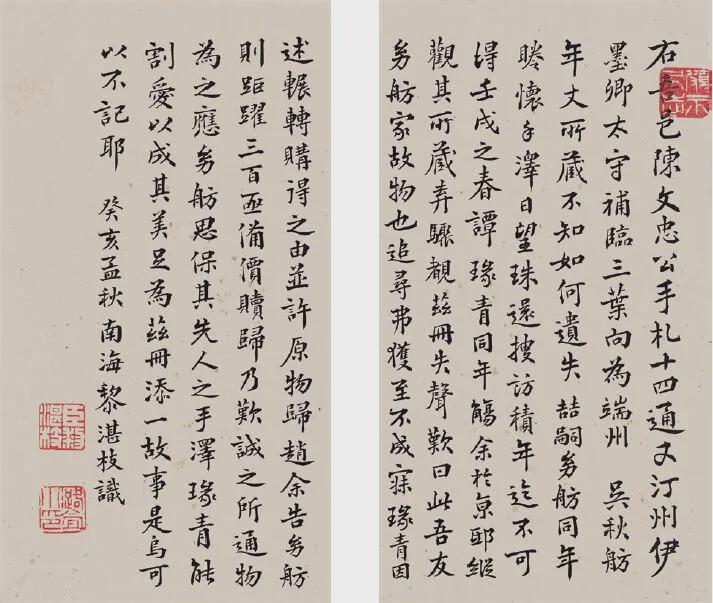 右吾邑陳文忠公手札十四通又汀州伊
墨卿太守補臨三葉向為端州 吳秋舫
年丈所藏不知如何遺失喆嗣勇舫同年
睠懷手澤日望珠還搜訪積年迄不可
得壬戌之春譚瑑青同年觴余於京邸縱
觀其所藏弆驟覩茲冊失聲歎曰此吾友
勇舫家故物也追尋弗獲至不成寐瑑青因
述輾轉購得之由並許原物歸趙余告勇舫
則距躍三百亟備價贖歸乃歎誠之所通物
為之應勇舫思保其先人之手澤瑑青能
割愛以成其美足為茲冊添一故事是烏可
以不記耶 癸亥孟秋南海黎湛枝識